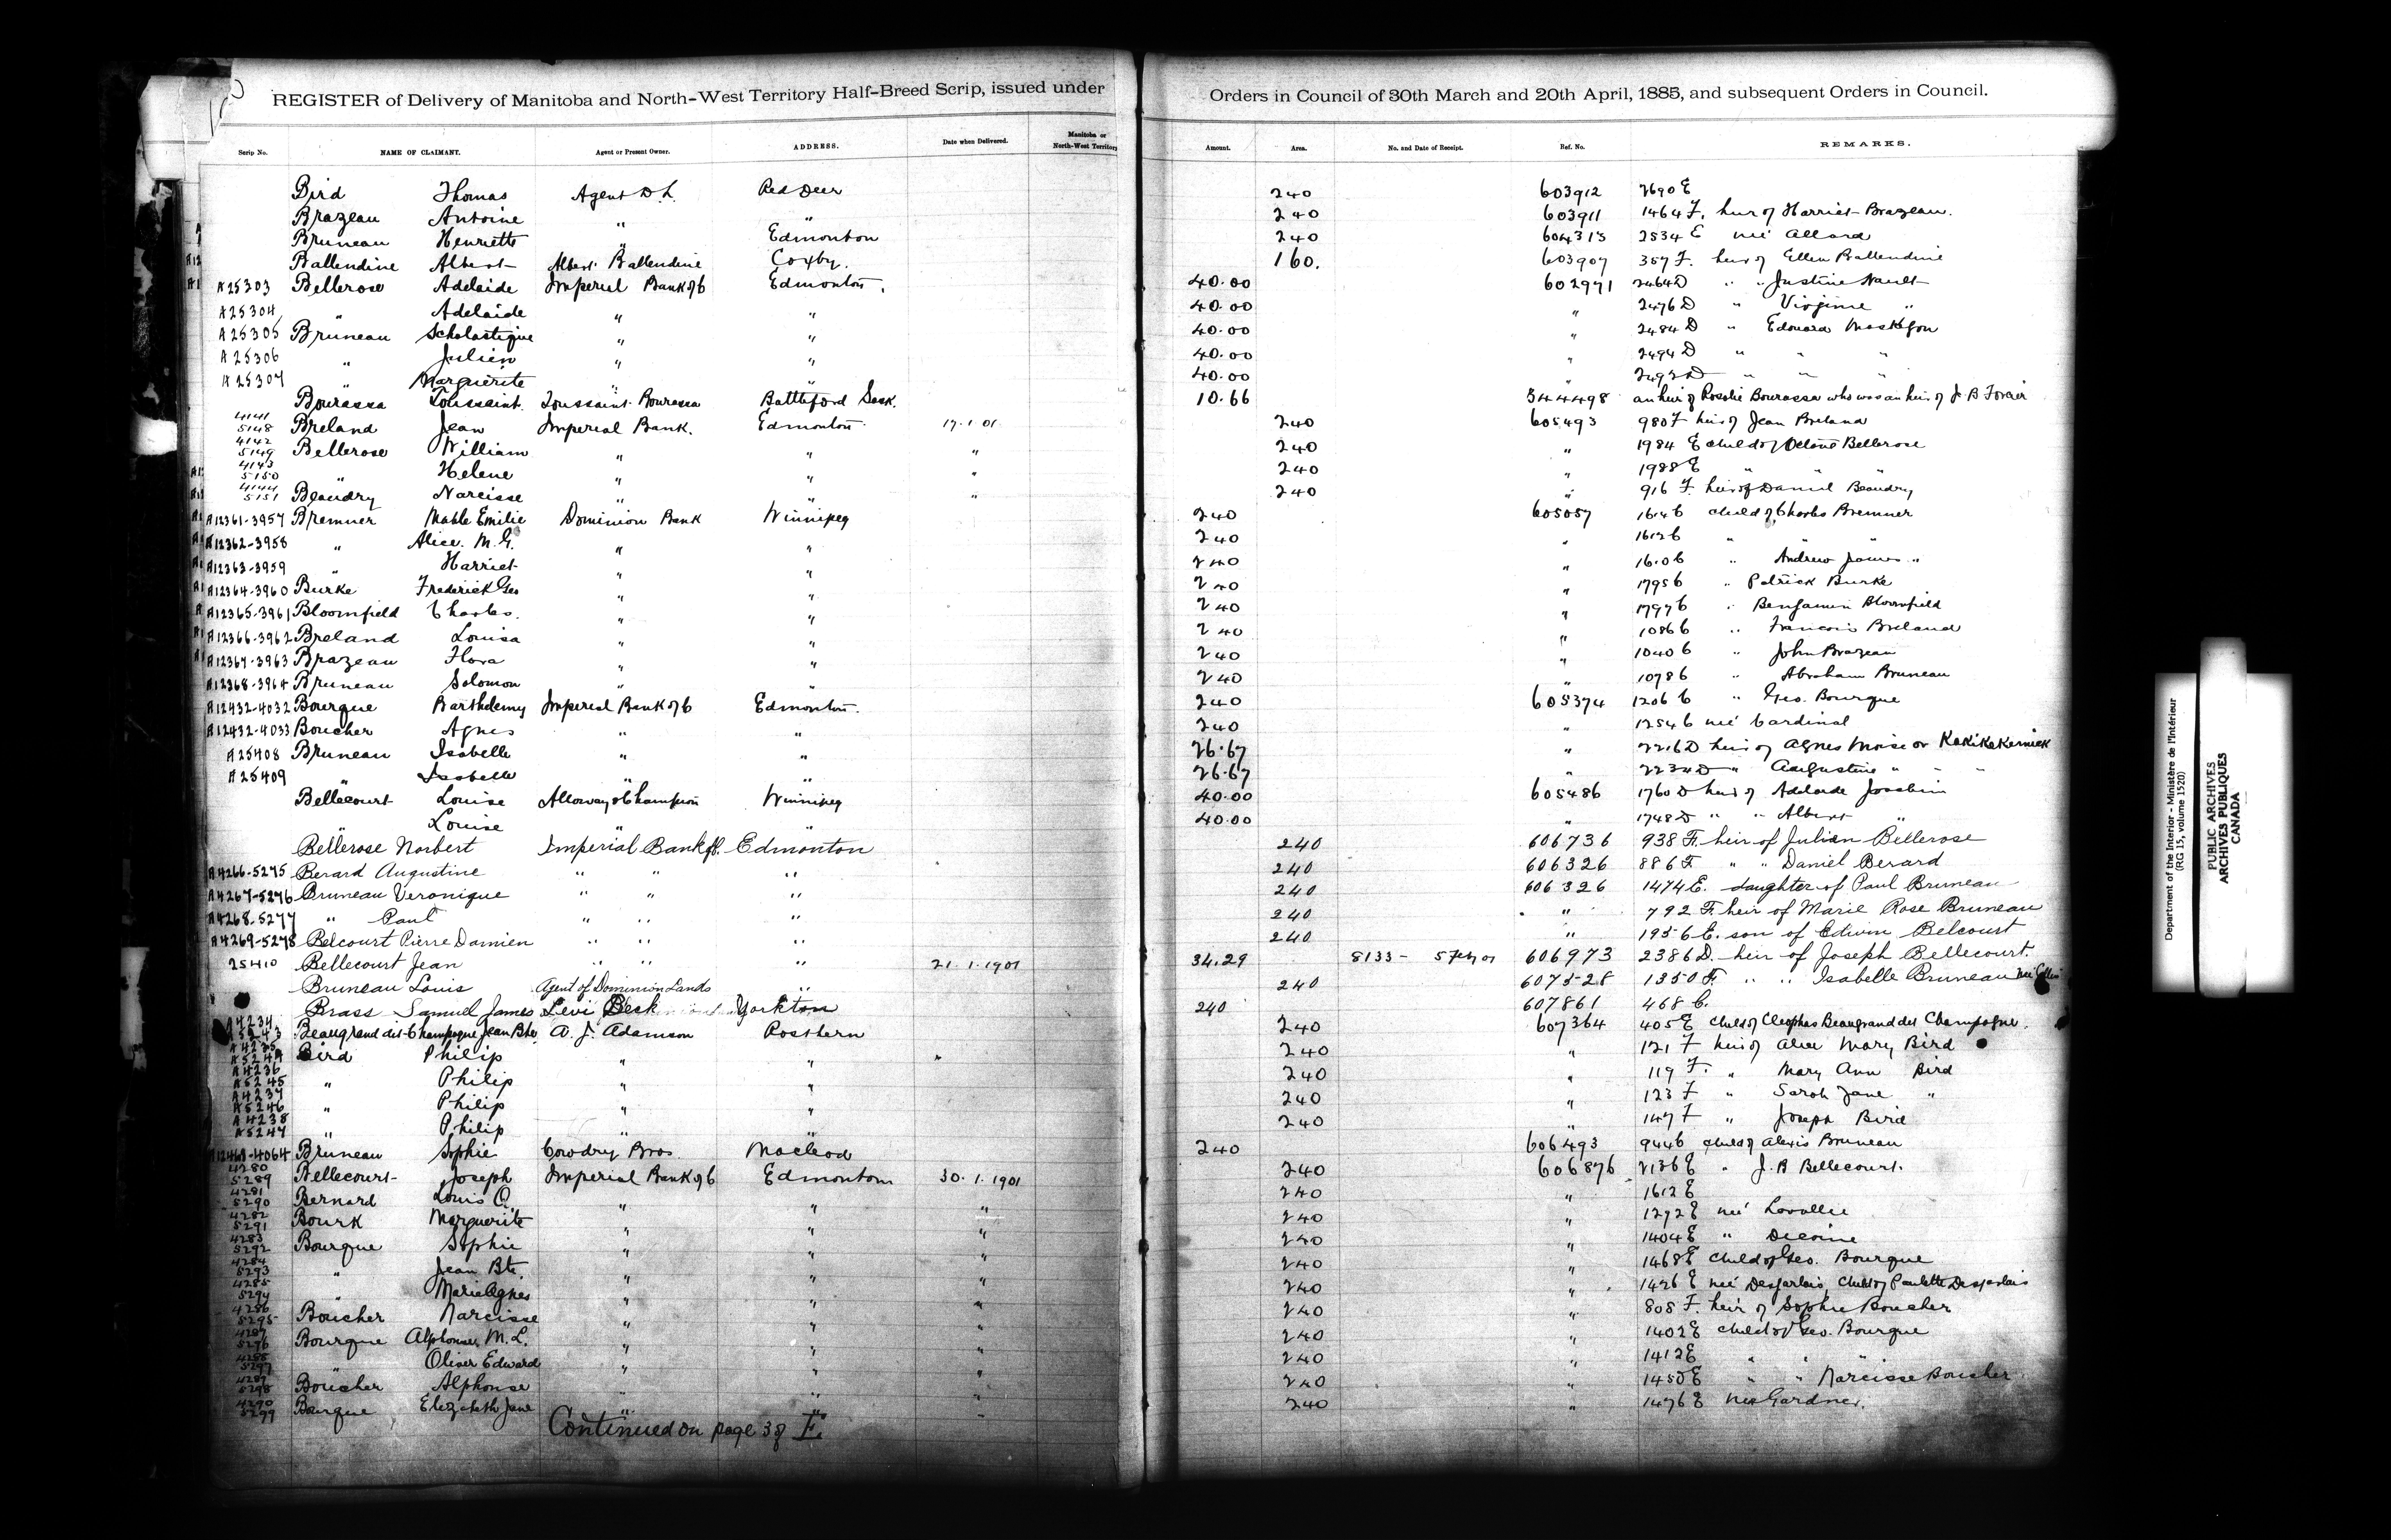 REGISTER of Delivery of Manitoba and North-West Territory Half-Breed Scrip, issued under Orders in Council of 30th March and 20th April, 1885, and subsequent Orders in Council.
Scrip No. NAME OF CLAIMANT. Agent or Present Owner. ADDRESS. Date when Delivered. Manitoba or North-West Territory Amount. Area. No. and Date of Receipt. Ref. No. REMARKS.
Bird Thomas Agent D.L. Red Deer 240 603912 2690 E
Brazeau Antoine " " 240 603911 1464 F. heir of Harriet Brazeau.
Bruneau Henriette " Edmonton 240 604313 2534 E neé Allard
Ballendine Albert Albert Ballendine Coxby. 160. 603907 357 F. heir of Ellen Ballendine
A25303 Bellerose Adelaide Imperial Bank of C Edmonton. 40.00 602971 2464 D " " Justine Nault
A25304 " Adelaide " " 40.00 " 2476 D " Virginie "
A25305 Bruneau Scholastique " " 40.00 " 2484 D " Edouard
A25306 " Julien " " 40.00 " 2494 D " " "
A25307 " Marguerite " " 40.00 " 2492 D " " "
Bourassa Toussaint. Toussaint Bourassa Battleford Sask. 10.66 344498 an heir of Rosalie Bourassa who was an heir of J. B
4141 5148 Breland Jean Imperial Bank. Edmonton 17.1.01 240 605493 980 F heir of Jean Breland
4142 5149 Bellerose William " " " 240 " 1984 E child of Octave Bellerose
4143 5150 " Helene " " " 240 " 1988 E " " "
4144 5151 Beaudry Narcisse " " " 240 " 916 F. heir of Daniel Beaudry
A12361-3957 Bremner Mable Emilie Dominion Bank Winnipeg 240 605057 1614 C child of Charles Bremner
A12362-3958 " Alice. M. G. " " 240 " 1612 C " "
A12363-3959 " Harriet " " 240 " 1606 C " Andrew James "
A12364-3960 Burke Frederick Geo " " 240 " 1795 C " Patrick Burke
A12365-3961 Bloomfield Charles. " " 240 " 1797 C " Benjamin Bloomfield
A12366-3962 Breland Louisa " " 240 " 1086 C " Francois Breland
A12367-3963 Brazeau Flora " " 240 " 1040 C " John Brazeau
A12368-3964 Bruneau Solomon " " 240 " 1078 C " Abraham Bruneau
A12432-4032 Bourque Barthelemy Imperial Bank of C Edmonton. 240 605374 1206 C " Geo. Bourque
A12432-4033 Boucher Agnes " " 240 " 1254 C neé Cardinal
A25408 Bruneau Isabelle " " 26.67 " 2216 D heir of Agnes Moise or Kakikakernick
A25409 " Isabelle " " 26.67 " 2234 D " Augustine " " "
Bellecourt Louise Alloway & Champion Winnipeg 40.00 605486 1760 D heir of Adelaide
" Louise " " 40.00 " 1748 D " " Albert "
Bellerose Norbert Imperial Bank of C. Edmonton 240 606736 938 F. heir of Julien Bellerose
A4266-5275 Berard Augustine " " " 240 606326 886 F " " Daniel Berard
A4267-5276 Bruneau Veronique " " " 240 606326 1474 E. daughter of Paul Bruneau
A4268-5277 " Paul " " " 240 " 792 F. heir of Marie Rose Bruneau
A4269-5278 Belcourt Pierre Damien " " " 240 " 1956 E. son of Edwin Belcourt
25410 Bellecourt Jean " " " 21.1.1901 34.29 8133- 5 Feby 01 606973 2386 D. heir of Joseph Bellecourt.
Bruneau Louis Agent of Dominion Lands " 240 607528 1350 F. " " Isabelle Bruneau
Brass Samuel James Levi Beck Yorkton 240 607861 468 C.
A4234 A5243 Beaugrand dit Champagne Jean Bte A. J. Adamson Rosthern 240 607364 405 E child of Cleophas Beaugrand dit Champagne.
A4235 A5244 Bird Philip " " 240 " 121 F heir of Alice Mary Bird
A4236 A5245 " Philip " " 240 " 119 F. " Mary Ann Bird
A4237 A5246 " Philip " " 240 " 123 F " Sarah Jane "
A4238 A5247 " Philip " " 240 " 147 F " Joseph Bird
A12463-4064 Bruneau Sophie Cowdry Bros. Macleod 240 606493 944 C child of Alexis Bruneau
4280 5289 Bellecourt Joseph Imperial Bank of C Edmonton 30.1.1901 240 606876 2136 E " J. B Bellecourt.
4281 5290 Bernard Louis O. " " " 240 " 1612 E
4282 5291 Bourk Marguerite " " " 240 " 1292 E neé Lavallie
4283 5292 Bourque Sophie " " " 240 " 1404 E " Decoine
4284 5293 " Jean Bte. " " " 240 " 1468 E child of Geo. Bourque
4285 5294 " Marie Agnes " " " 240 " 1426 E neé Desjarlais, child of Paulette Desjarlais
4286 5295 Boucher Narcisse " " " 240 " 808 F. heir of Sophie Boucher
4287 5296 Bourque Alphonse M. L. " " " 240 " 1402 E child of Geo. Bourque
4288 5297 " Oliver Edward " " " 240 " 1412 E " " "
4289 5298 Boucher Alphonse " " " 240 " 1450 E " " Narcisse Boucher
4290 5299 Bourque Elizabeth Jane " " " 240 " 1476 E neé Gardner.
Continued on page 38 E.
Department of the Interior - Ministère de l'Intérieur
(RG 15, volume 1520)
PUBLIC ARCHIVES
ARCHIVES PUBLIQUES
CANADA